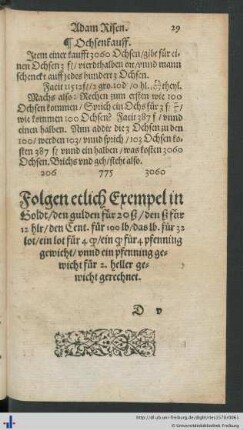 Adam Risen. 29
¶ Ochsenkauff.
Item einer kaufft 3060 Ochsen/gibt für ei-
nen Ochsen 3 fl/ vierdthalben ort/vnnd mann
schenckt auff jedes hundert 3 Ochsen.
Facit 11512 fl/
Machs also: Rechen zum ersten wie 100
Ochsen kommen/ Sprich ein Ochs für 3 fl
wie kommen 100 Ochsen? Facit 387 fl/ vnnd
einen halben. Nun addir die 3 Ochsen zu den
100/ werden 103/ vnnd sprich/ 103 Ochsen ko-
sten 387 fl vnnd ein halben/ was kosten 3060
Ochsen. Brichs vnd geh/ steht also.
206 775 3060
Folgen etlich Exempel in
Goldt/den gulden für 20 ß/ den ß für
12 hlr/ den Cent. für 100 lb/ das lb. für 32
lot/ ein lot für 4 / ein für 4 pfenning
gewicht/ vnnd ein pfenning ge-
wicht für 2. heller ge-
wicht gerechnet.
D v